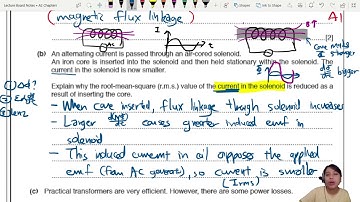 Lecture Based Notes • A2 Chapters
(magnetic flux linkage)
A1
[2]
(b) An alternating current is passed through an air-cored solenoid.
An iron core is inserted into the solenoid and then held stationary within the solenoid. The
current in the solenoid is now smaller.
Explain why the root-mean-square (r.m.s.) value of the current in the solenoid is reduced as a
result of inserting the core.
- When core inserted, flux linkage though solenoid increases
- Larger causes greater induced emf in
solenoid
- This induced current in oil opposes the applied
emf (from AC generator), so current is smaller
(Irms)
(c) Practical transformers are very efficient. However, there are some power losses.